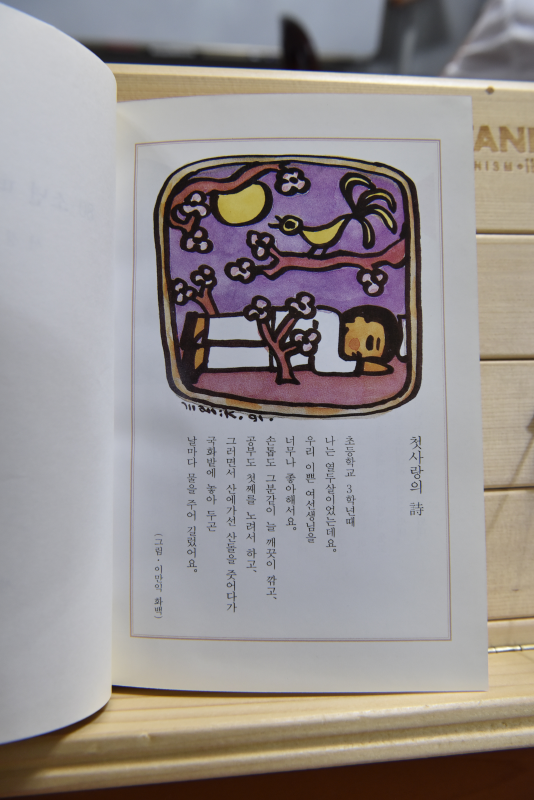 첫사랑의 詩
초등학교 3학년때
나는 열두살이었는데요.
우리 이쁜 여선생님을
너무나 좋아해서요.
손톱도 그분같이 늘 깨끗이 깎고,
공부도 첫째를 노려서 하고,
그러면서 산에가선 산돌을 줏어다가
국화밭에 놓아 두곤
날마다 물을 주어 길렀어요.
(그림·이만익 화백)